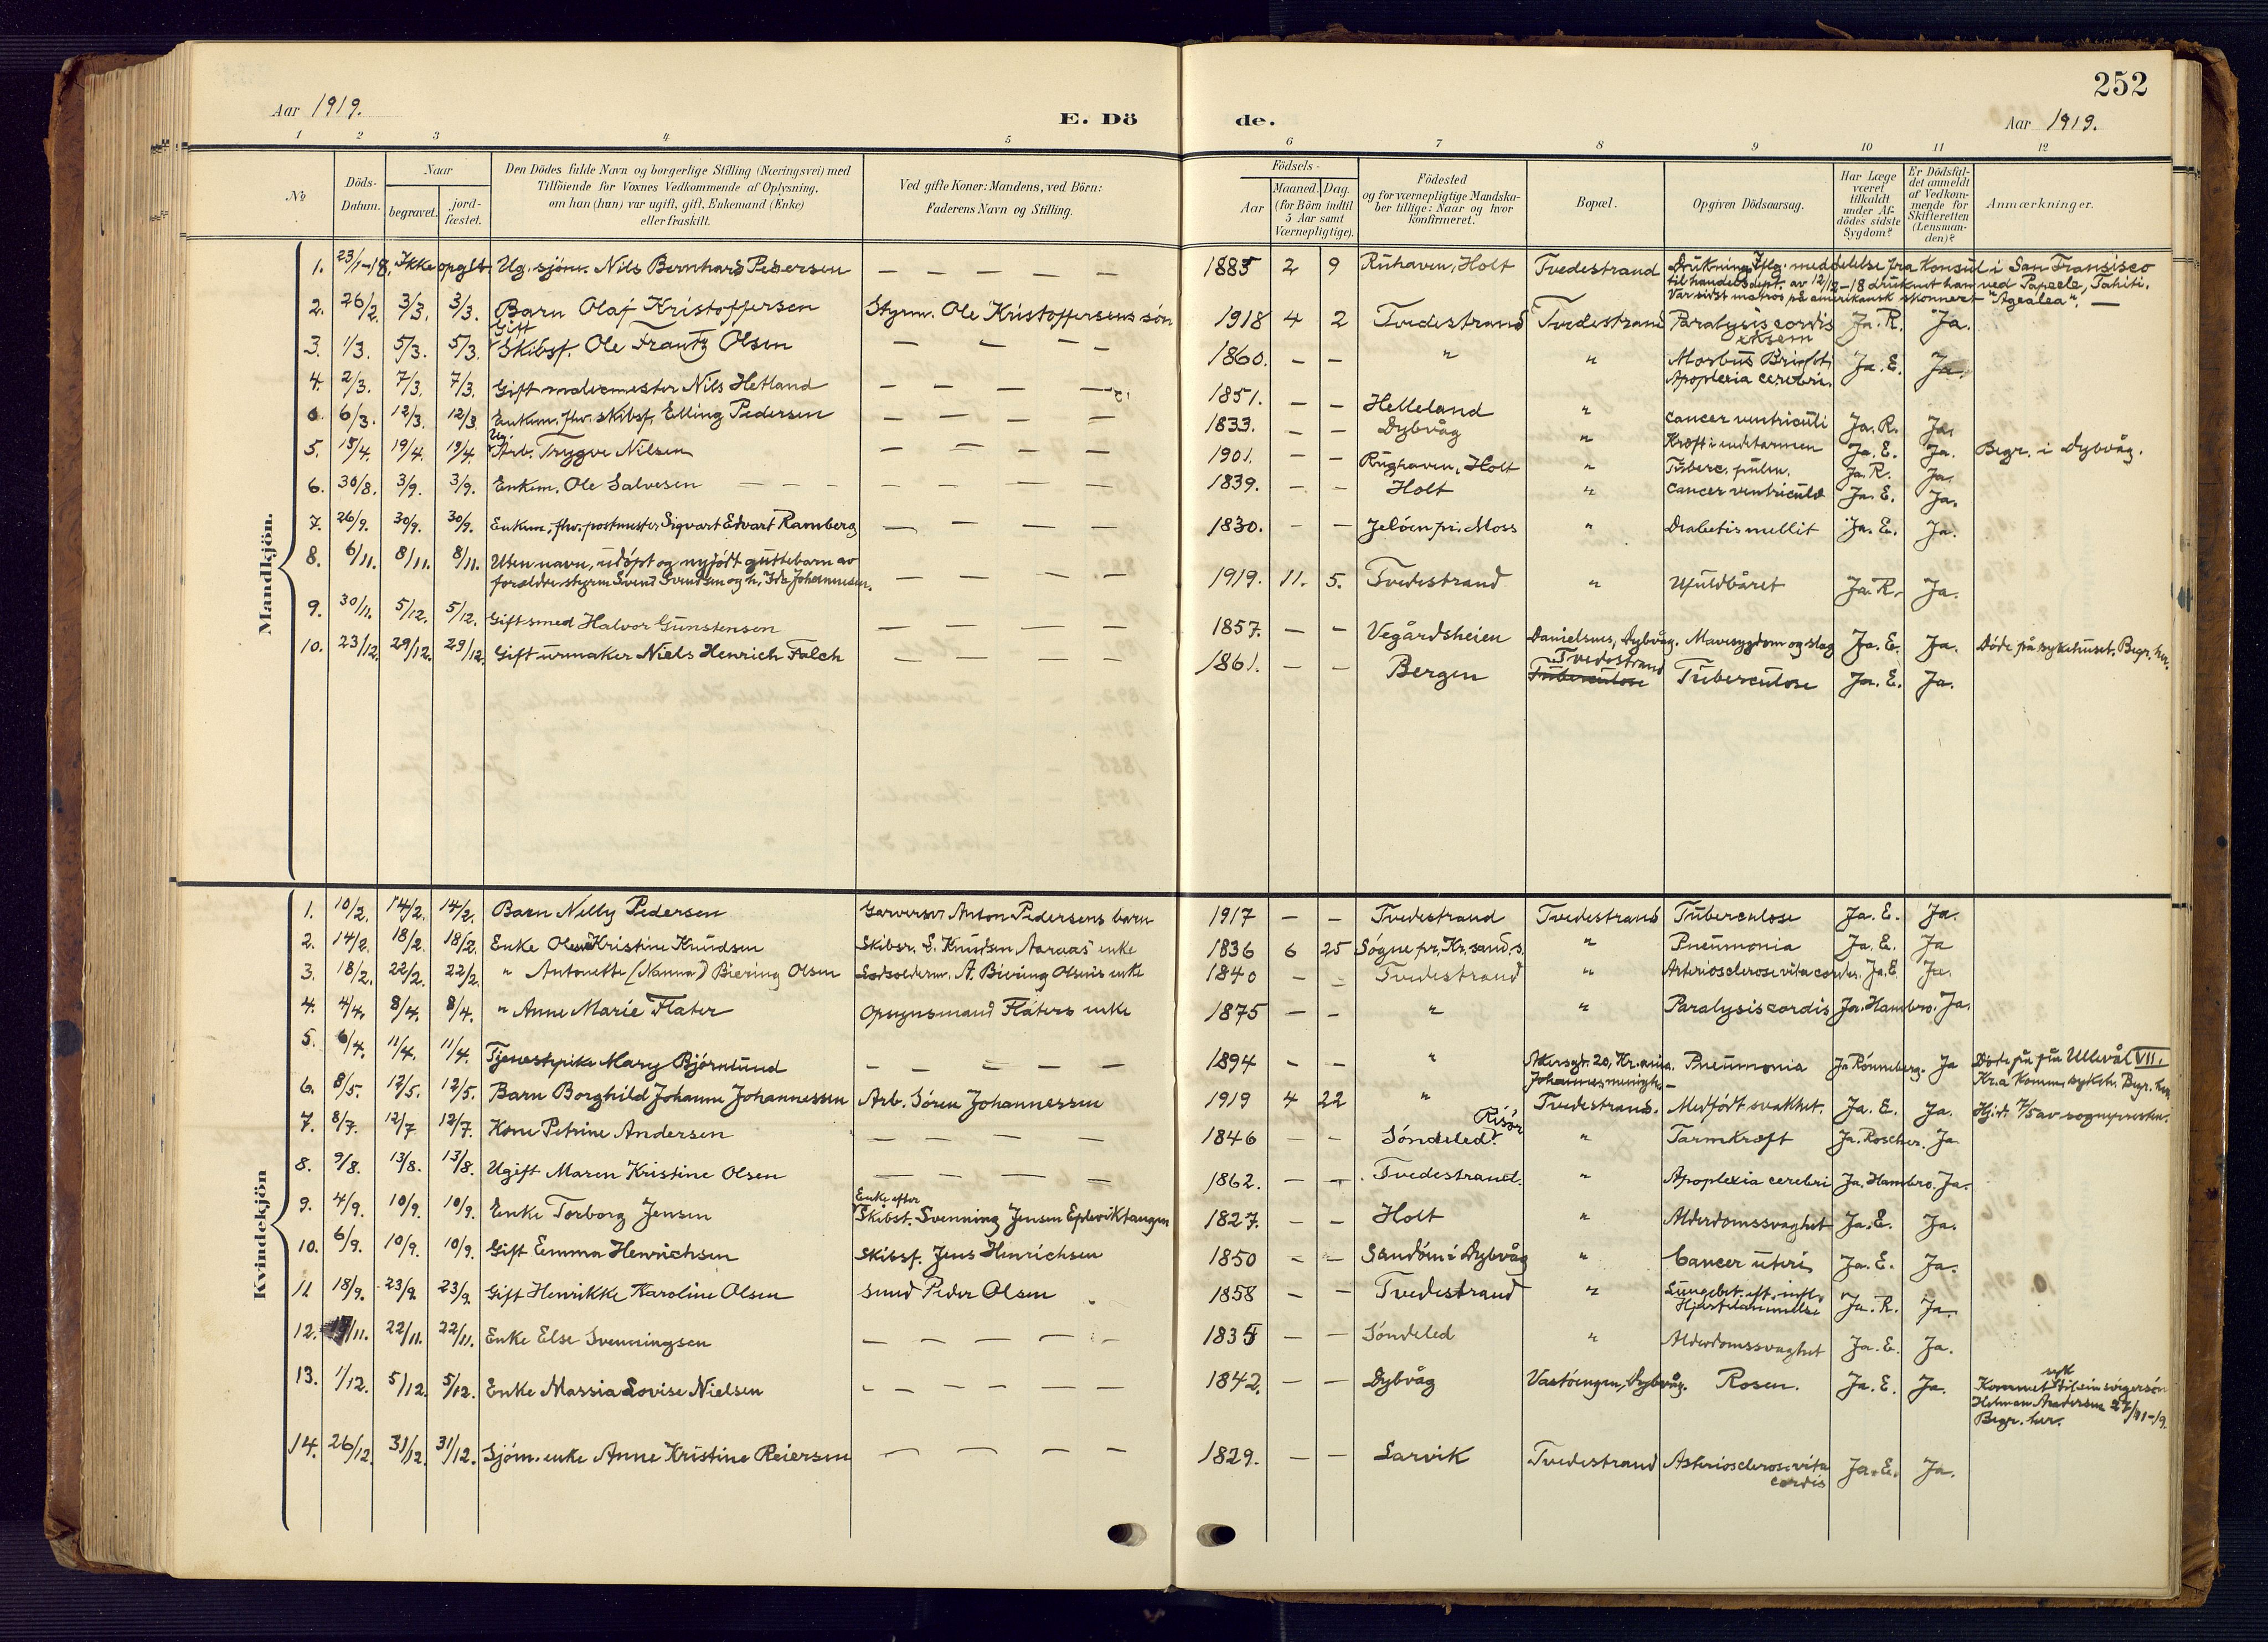 252
Aar 1919. E. Dö de. Aar 1919.
1 2 3 4 5 6 7 8 9 10 11 12
No Döds-Datum. Naar begravet. jord-fæstet. Den Dödes fulde Navn og borgerlige Stilling (Næringsvei) med Tilföiende for Voxnes Vedkommende af Oplysning, om han (hun) var ugift, gift, Enkemand (Enke) eller fraskilt. Ved gifte Koner: Mandens, ved Börn: Faderens Navn og Stilling. Födsels- Aar Maaned. Dag. (for Börn indtil 5 Aar samt Værnepligtige). Födested og for værnepligtige Mandskaber tillige: Naar og hvor konfirmeret. Bopæl. Opgiven Dödsaarsag. Har Læge været tilkaldt under Afdödes sidste Sygdom? Er Dödsfaldet anmeldt af Vedkommende for Skifteretten (Lensmanden)? Anmærkninger.
Mandkjön.
1. 23/1-18. Ikke opgitt. Ug. sjöm. Nils Bernhard Pedersen — — — — 1885 2 9 Ruhaven, Holt Tvedestrand Drukning. Ifлg. meddelelse fra Konsul i San Fransisco
til handelsdept. av 12/12-18 druknet han ved Papeele, Tahiti.
Var sidst matros på amerikansk skonnert "Agealea". —
2. 26/2. 3/3. 3/3. Barn Olaf Kristoffersen Styrm. Ole Kristoffersens søn 1918 4 2 Tvedestrand Tvedestrand Paralysis cordis Ja. R. Ja.
3. 1/3. 5/3. 5/3. Gift Skibsf. Ole Frantz Olsen — — — — 1860. — — " " Morbus Brightt Apoplexia cerebri. Ja. E. Ja.
4. 2/3. 7/3. 7/3. Gift malermester Nils Hetland — — — — 1851. — — Helleland " Cancer ventriculi Ja. R. Ja.
0. 6/3. 12/3. 12/3. Enkem. fhv. skibsf. Elling Pedersen — — — — 1833. — — Dybvåg " Kræft i endetarmen Ja. E. Ja. Begr. i Dybvåg.
5. 15/4. 19/4. 19/4. Ug. Arb. Trygve Nilsen — — — — 1901. — — Rughaven, Holt " Tuberc. pulm. Ja. R. Ja.
6. 30/8. 3/9. 3/9. Enkem. Ole Salvesen — — — — 1839. — — Holt " Cancer ventriculi Ja. E. Ja.
7. 26/9. 30/9. 30/9. Enkem. fhv. postmester Sigvart Edvart Ramberg — — — — 1830. — — Jelöen pr. Moss " Diabetis mellit Ja. E. Ja.
8. 6/11. 8/11. 8/11. Uten navn, udöpt og nyfödt guttebarn av
forældre styrm Svend Svendsen og h. Ida Johannesen. — — — — 1919. 11. 5. Tvedestrand " Ufuldbåret Ja. R. Ja.
9. 30/11. 5/12. 5/12. Gift smed Halvor Gunstensen — — — — 1857. — — Vegårdsheien Danielsnes, Dybvåg. Mavesygdom og slag Ja. E. Ja. Döde på sykehuset. Begr. her.
10. 23/12. 29/12. 29/12. Gift urmaker Niels Henrich Falch — — — — 1861. — — Bergen Tvedestrand Tuberculose Tuberculose Ja. E. Ja.
Kvindekjön
1. 10/2. 14/2. 14/2. Barn Nelly Pedersen Garversv. Anton Pedersens barn 1917 — — Tvedestrand Tvedestrand Tuberculose Ja. E. Ja.
2. 14/2. 18/2. 18/2. Enke Kristine Knudsen Skibsr. S. Knudsen Aaraas' enke 1836 6 25 Søgne pr. Kr.sand. s. " Pneumonia Ja. E. Ja
3. 18/2. 22/2. 22/2. " Antonette (Nanna) Biering Olsen Lodsolderm. A. Biering Olsens enke 1840 — — Tvedestrand " Arteriosclerose vita cordis. Ja. E. Ja.
4. 4/4. 8/4. 8/4. " Anne Marie Flater Opsynsmand Flaters enke 1875 — — " " Paralysis cordis Ja. Hambro. Ja.
5. 6/4. 11/4. 11/4. Tjenestpike Mary Björnlund — — — — 1894 — — " Akersgt. 20, Kr.ania. Johannes menigh. — Pneumonia Ja Rönneberg. Ja Döde på Ullevål VII.
Kr.a Komm. sykeh. Begr. her
6. 8/5. 12/5. 12/5. Barn Borghild Johanne Johannessen Arb. Sören Johannessen 1919 4 22 " Tvedestrand. Medfödt svakhet. Ja. E. Ja. Hj.d. 7/5 av sognepresten.
7. 8/7. 12/7 12/7. Kone Petrine Andersen — — — — 1846 — — Söndeled. Risör " Tarmkræft Ja. Roscher. Ja
8. 9/8. 13/8. 13/8. Ugift Maren Kristine Olsen — — — — 1862. — — Tvedestrand. " Apoplexia cerebri Ja. Hambro. Ja.
9. 4/9. 10/9. 10/9. Enke Torborg Jensen Enke efter Skibst. Svenning Jensen Epleviktangen 1827. — — Holt " Alderdomssvaghet Ja. E. Ja.
10. 6/9. 10/9. 10/9. Gift Emma Henrichsen Skibsf. Jens Henrichsen 1850 — — Sandöen i Dybvåg " Cancer uteri Ja. E. Ja.
11 18/9. 23/9. 23/9. Gift Henrikke Karoline Olsen Smed Peder Olsen 1858 — — Tvedestrand " Lungebet. eft. infl. Hjertelammelse Ja. R. Ja.
12. /11. 22/11. 22/11. Enke Else Svenningsen — — — — — Söndeled " Alderdomssvaghet Ja. E. Ja.
13. 1/12. 5/12. 5/12. Enke Massia Lovise Nielsen — — — — — 1842. — — Dybvåg Vastöengen, Dybvåg. Rosen. Ja. E. Ja. Kommet syk til sin svigersön
Helman Andersen 27/11-19.
Begr. her.
14. 26/12. 31/12. 31/12. Sjöm. enke Anne Kristine Reiersen — — — — 1829. — — Larvik Tvedestrand Arteriosclerose vita cordis Ja. E. Ja.